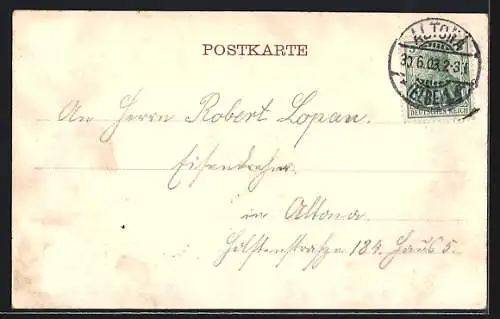 POSTKARTE
ALTONA
30.6.03.2-3N
(ELBE) 1
DEUTSCHES REICH
An Herrn Robert Lopan.
in Altona.
Holstenstraße 184. Haus 5.